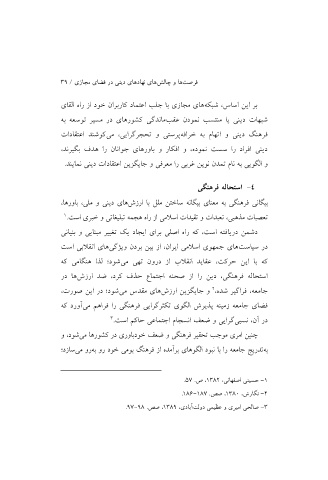 فرصت‌ها و چالش‌های نهادهای دینی در فضای مجازی / ۳۹
بر این اساس، شبکه‌های مجازی با جلب اعتماد کاربران خود از راه القای
شبهات دینی یا منتسب نمودن عقب‌ماندگی کشورهای در مسیر توسعه به
فرهنگ دینی و اتهام به خرافه‌پرستی و تحجرگرایی، می‌کوشند اعتقادات
دینی افراد را سست نموده، و افکار و باورهای جوانان را هدف بگیرند،
و الگویی به نام تمدن نوین غربی را معرفی و جایگزین اعتقادات دینی نمایند.
۴- استحاله فرهنگی
بیگانی فرهنگی به معنای بیگانه ساختن ملل با ارزش‌های دینی و ملی، باورها،
تعصبات مذهبی، تعبدات و تقیدات اسلامی از راه هجمه تبلیغاتی و خبری است.۱
دشمن دریافته است، که راه اصلی برای ایجاد یک تغییر مبنایی و بنیانی
در سیاست‌های جمهوری اسلامی ایران، از بین بردن ویژگی‌های انقلابی است
که با این حرکت، عقاید انقلاب از درون تهی می‌شود؛ لذا هنگامی که
استحاله فرهنگی، دین را از صحنه اجتماع حذف کرد، ضد ارزش‌ها در
جامعه، فراگیر شده،۲ و جایگزین ارزش‌های مقدس می‌شود؛ در این صورت،
فضای جامعه زمینه پذیرش الگوی تکثرگرایی فرهنگی را فراهم می‌آورد که
در آن، نسبی‌گرایی و ضعف انسجام اجتماعی حاکم است.۳
چنین امری موجب تحقیر فرهنگی و ضعف خودباوری در کشورها می‌شود، و
به‌تدریج جامعه را با نبود الگوهای برآمده از فرهنگ بومی خود رو به‌رو می‌سازد؛
۱- حسینی اصفهانی، ۱۳۸۲، ص. ۵۷.
۲- نگارش، ۱۳۸۰، صص. ۱۸۷-۱۸۶.
۳- صالحی امیری و عظیمی دولت‌آبادی، ۱۳۸۹، صص. ۹۸-۹۷.